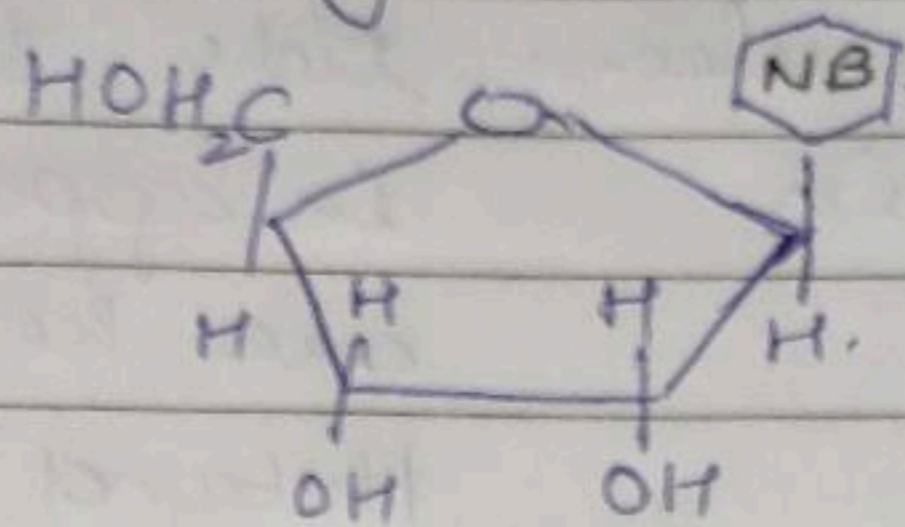 HOH₂C O NB
H H H H.
OH OH